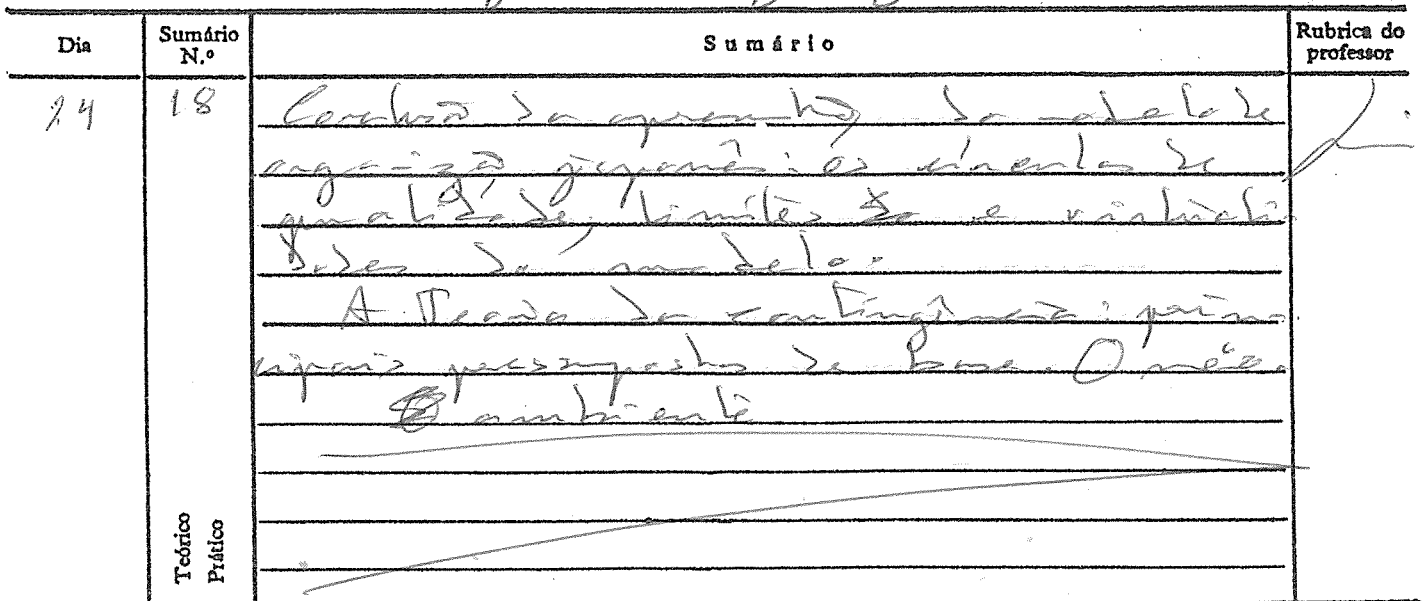 Dia Sumário N.º Sumário Rubrica do professor
24 18 Conclusão da apresentação do modelo de
organização japonês: os círculos de
qualidade, limites e virtuali
dades do modelo.
A Teoria da contingência: prin
cipais pressupostos de base. O meio
ambiente
Teórico
Prático